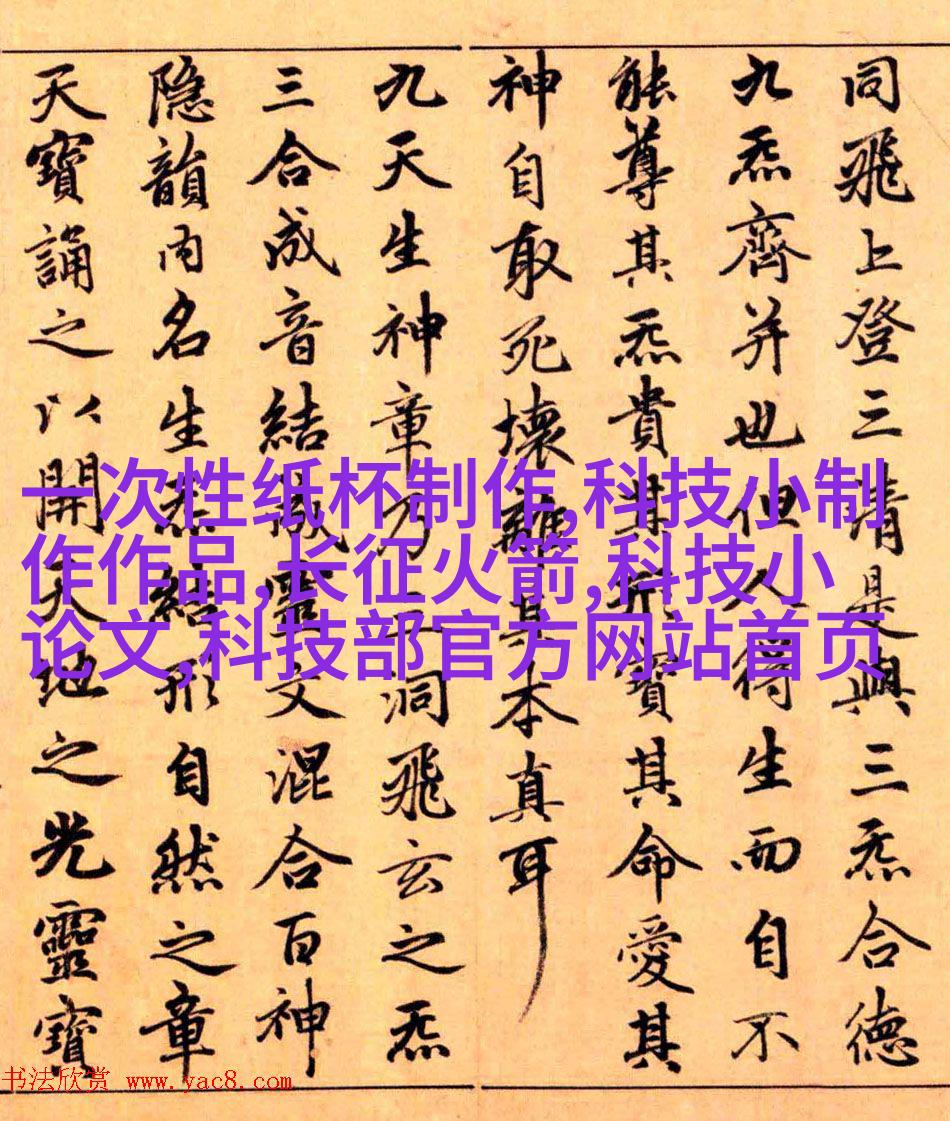 同飛上登三清是與三炁合德
九炁齊并也但人得生而自不
能尊其炁貴其形寶其命愛其
神自取死壞離其本真耳
九天生神章乃三洞飛玄之炁
三合成音結成靈文混合百神
隱韻內名生炁結形自然之章
天寶誦之以開天地之光靈寶
一次性纸杯制作,科技小制
作作品,长征火箭,科技小
论文,科技部官方网站首页
书法欣赏 www.yac8.com